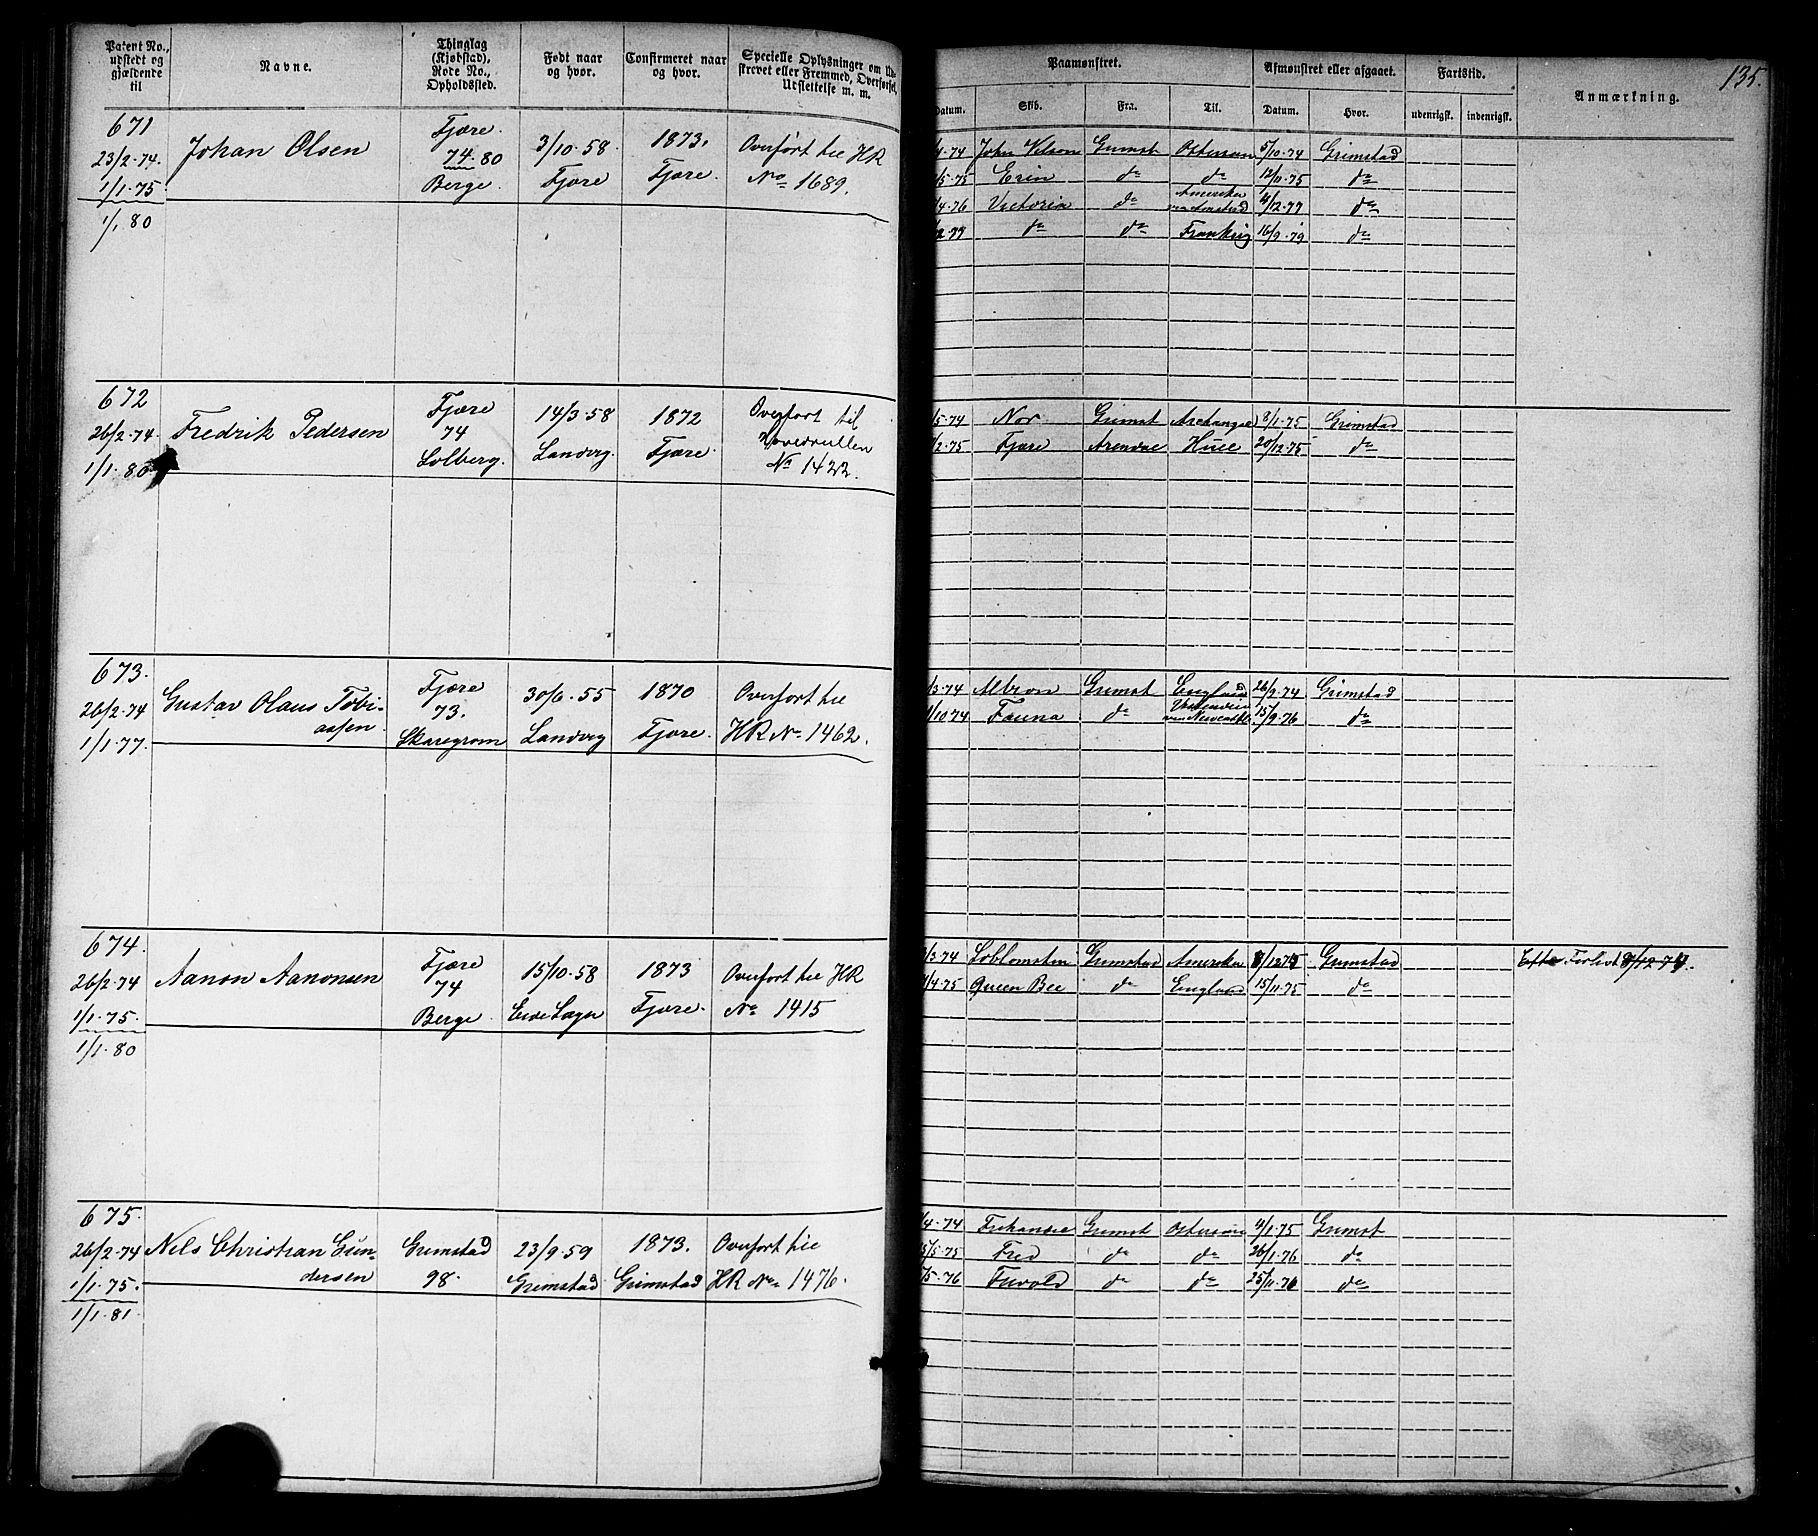 Patent No., udstedt og gjældende til
Navne.
Thinglag (Kjøbstad), Rode No., Opholdssted.
Født naar og hvor.
Confirmeret naar og hvor.
Specielle Oplysninger om Udskrevet eller Fremmed, Overførsel, Udslettelse m. m.
Paamønstret.
Afmønstret eller afgaaet.
Fartstid.
Anmærkning.
135.
Datum.
Skib.
Fra.
Til.
Datum.
Hvor.
udenrigsk.
indenrigsk.
671
23/2-74.
1/1-75
1/1 80
Johan Olsen
Fjære.
74.80
Berge.
3/10-58.
Fjære
1873.
Fjære.
Overført til HR
No 1689.
/4-74 John Nilson Grimst Østersøen 5/10-74 Grimstad
/5-75 Erin do do 12/11-75 do
/4-76 Victoria do Amerika 4/12-77 do
/12-77 do do 16/9-79 do
672
26/2-74.
1/1-80
Fredrik Pedersen
Fjære
74
Solberg.
14/3-58
Landvig.
1872
Fjære.
Overført til
Hovedrullen
No 1422.
/5-74 Nor Grimst Archangel 8/1-75 Grimstad
/2-75 Fjære Arendal Hull 20/12-75 do
673.
26/2-74
1/1-77.
Gustav Olaus Tobi-
assen.
Fjære
73.
Skaregrøm
30/6-55
Landvig
1870
Fjære.
Overført til
HR No 1462.
/3-74 Albion Grimst England 26/9-74 Grimstad
/10 74 Fauna do 15/9-76 do
674.
26/2-74
1/1-75.
1/1-80
Aanon Aanonsen
Fjære
74
Berge.
15/10-58
Eide Sogn
1873
Fjære.
Overført til HR
No 1415
/3-74 Loblomsten Grimstad Amerika 8/12 Grimstad Forlist 8/12-74.
/4-75 Queen Bee do England 15/11-75 do
675.
26/2-74
1/1-75.
1/1-81
Nels Christian Gun-
dersen
Grimstad
98.
23/9-59
Grimstad
1873.
Grimstad
Overført til
HR No 1476.
/4-74 Grimst Østersøen 9/1-75 Grimst
5/5-75 Fred do do 26/1-76 do
/5-76 do do 25/11-76 do